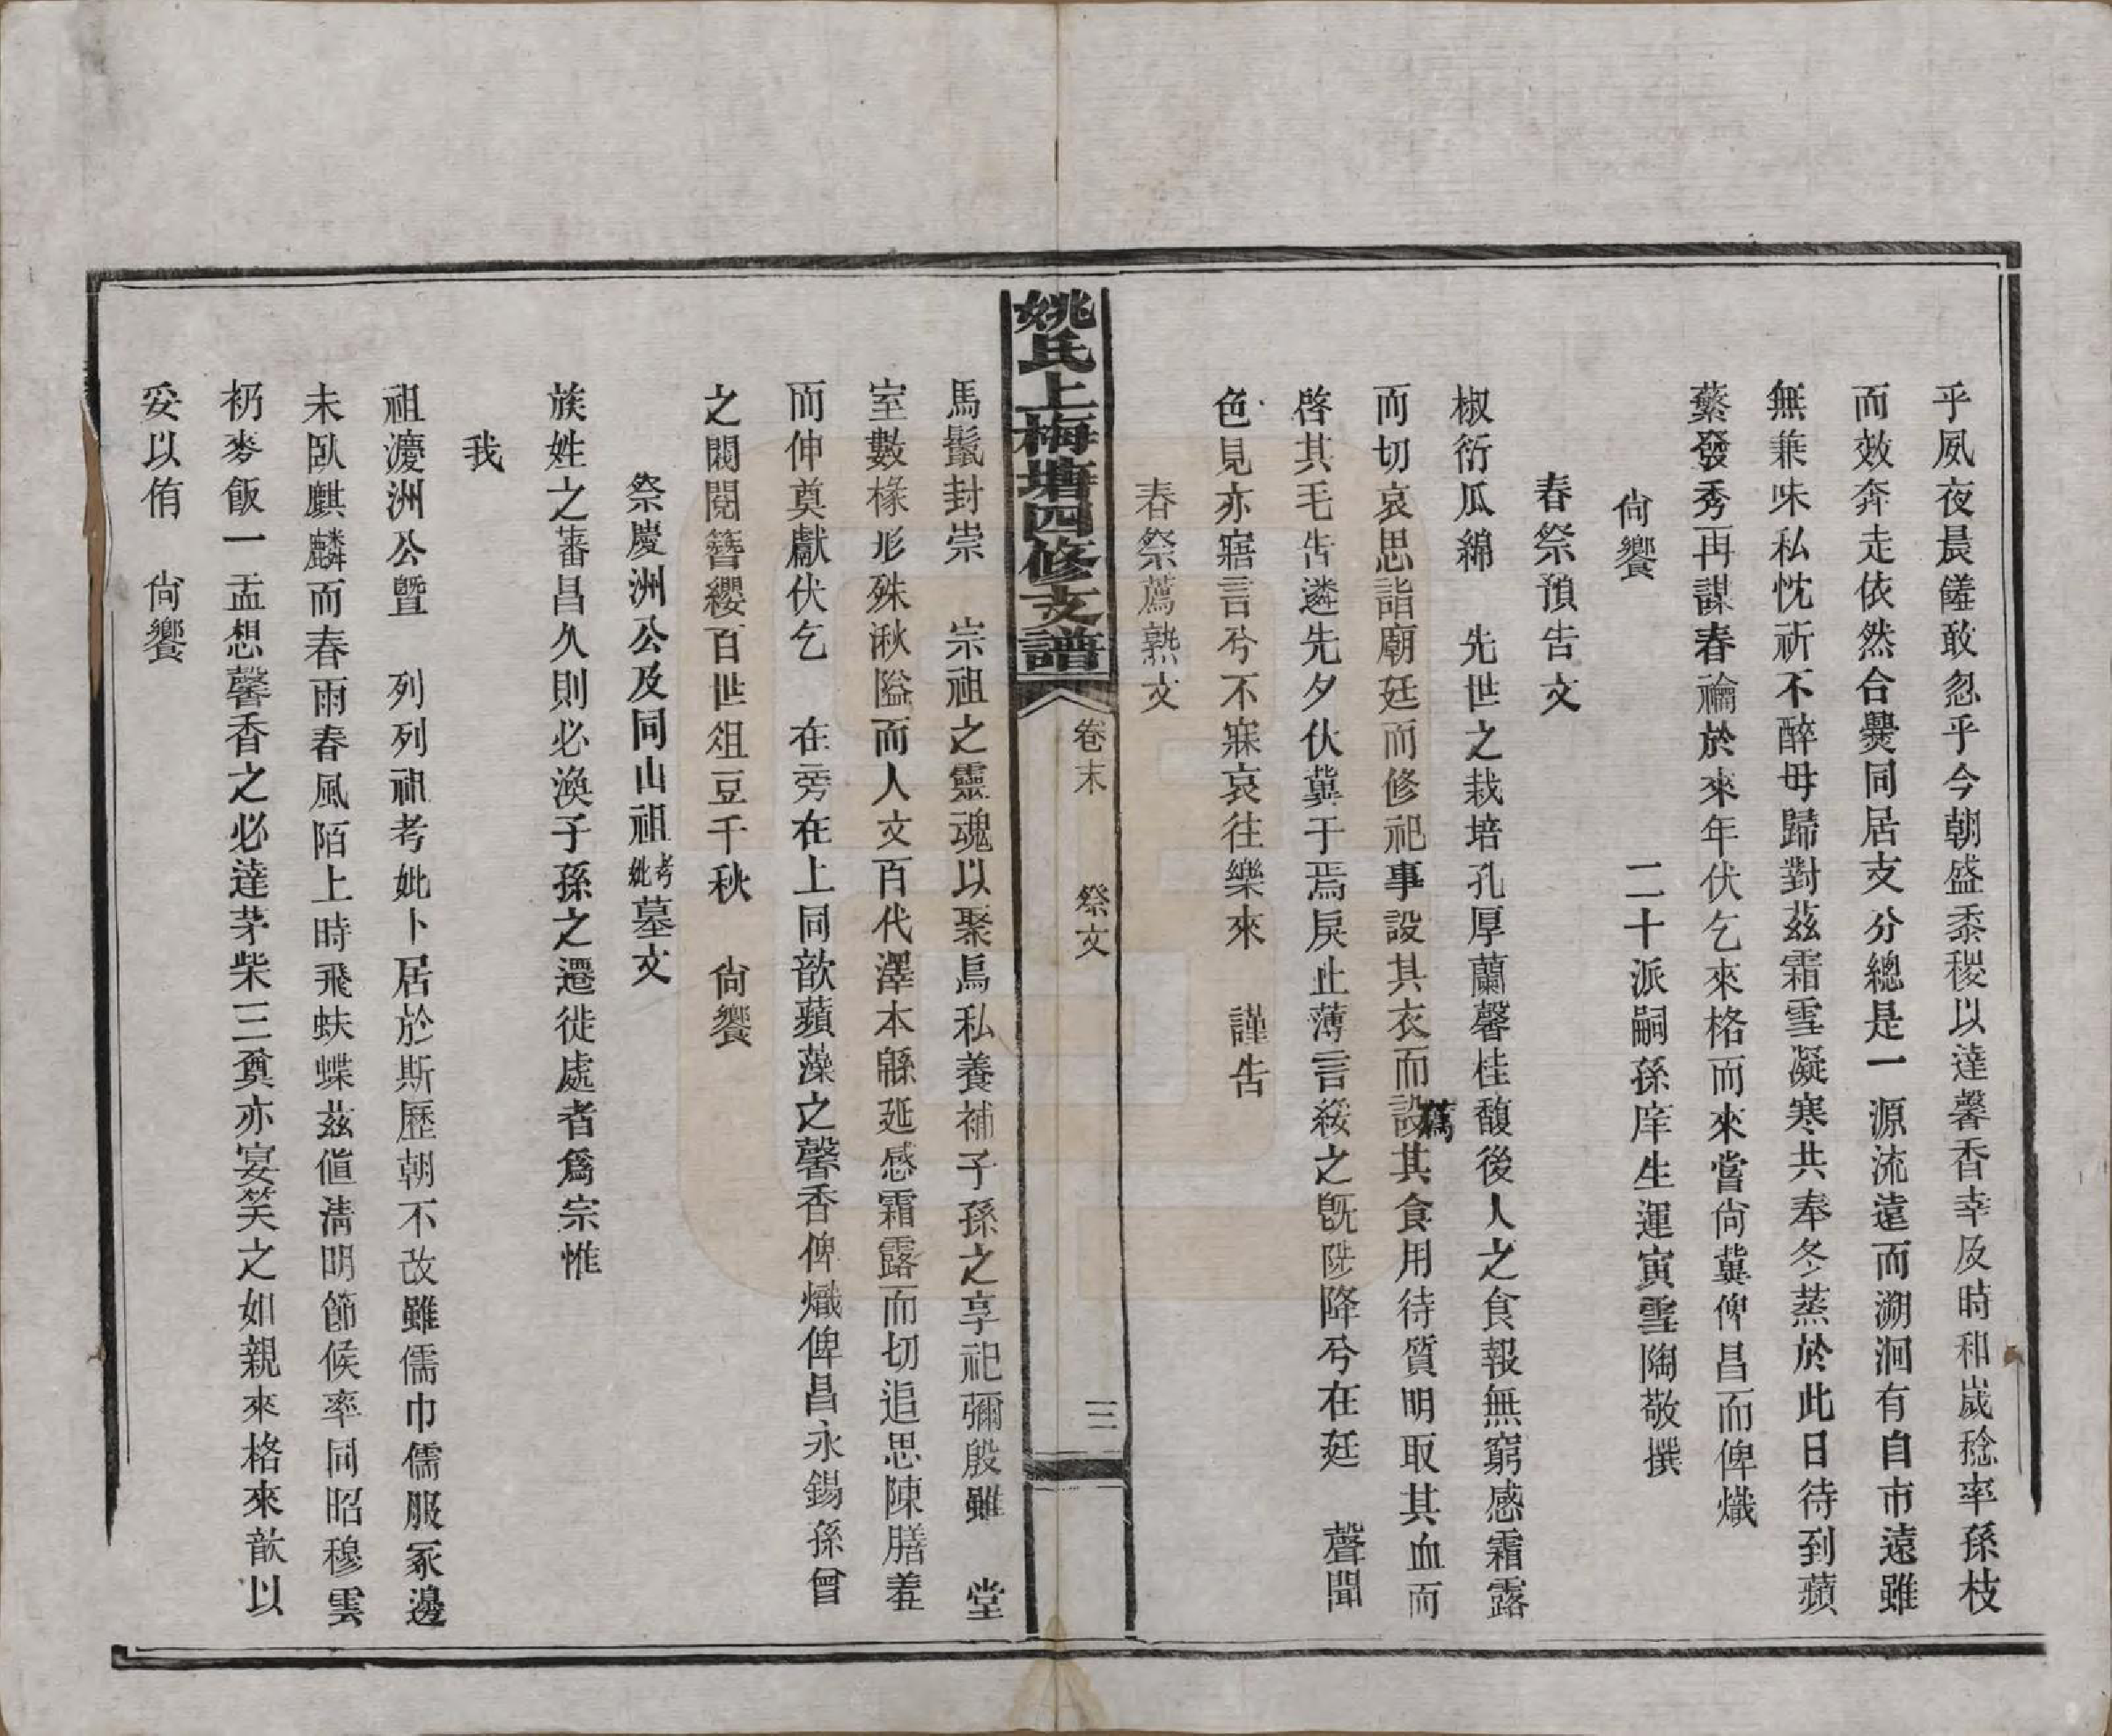 乎夙夜晨饈敢忽乎今朝盛黍稷以達馨香幸及時和歲稔率孫枝
而效奔走依然合爨同居支分總是一源流遠而溯洄有自市遠雖
無兼味私忱祈不醉毋歸對茲霜雪凝寒共奉冬蒸於此日待到蘋
蘩發秀再謀春禴於來年伏乞來格而來嘗尚冀俾昌而俾熾
尙饗　二十派嗣孫庠生運寅雪陶敬撰
春祭預告文
椒衍瓜綿　先世之栽培孔厚蘭馨桂馥後人之食報無窮感霜露
而切哀思詣廟廷而修祀事設其衣而設薦其食用待質明取其血而
啓其毛告遴先夕伏冀于焉戾止薄言綏之旣陞降兮在廷　聲聞
色見亦寤言兮不寐哀往樂來　謹告
春祭薦熟文
姚氏上梅塘四修支譜
卷末　祭文
三
馬鬣封崇　宗祖之靈魂以聚烏私養補子孫之享祀彌殷雖　堂
室數椽形殊湫隘而人文百代澤本緜延感霜露而切追思陳膳羞
而伸奠獻伏乞　在旁在上同歆蘋藻之馨香俾熾俾昌永錫孫曾
之閥閱簪纓百世俎豆千秋　尙饗
祭慶洲公及同山祖考妣墓文
族姓之蕃昌久則必渙子孫之遷徙處者爲宗惟
我
祖慶洲公曁　列列祖考妣卜居於斯歷朝不改雖儒巾儒服冢邊
未臥麒麟而春雨春風陌上時飛蛺蝶茲値淸明節候率同昭穆雲
礽麥飯一盂想馨香之必達茅柴三奠亦宴笑之如親來格來歆以
妥以侑　尙饗